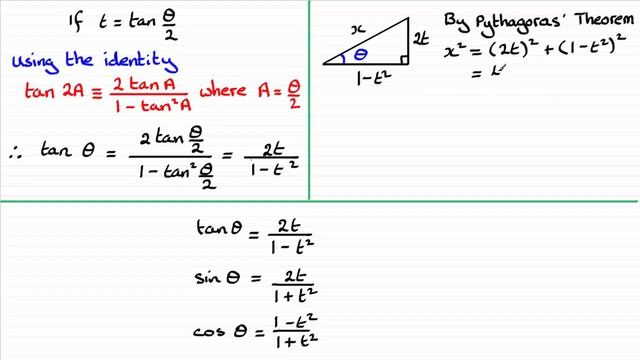 If t = tan θ/2
using the identity
tan 2A ≡ 2 tan A / 1 − tan²A where A = θ/2
∴ tan θ = 2 tan θ/2 / 1 − tan² θ/2 = 2t / 1 − t²
x
2t
θ
1 − t²
By Pythagoras' Theorem
x² = (2t)² + (1 − t²)²
=
tan θ = 2t / 1 − t²
sin θ = 2t / 1 + t²
cos θ = 1 − t² / 1 + t²